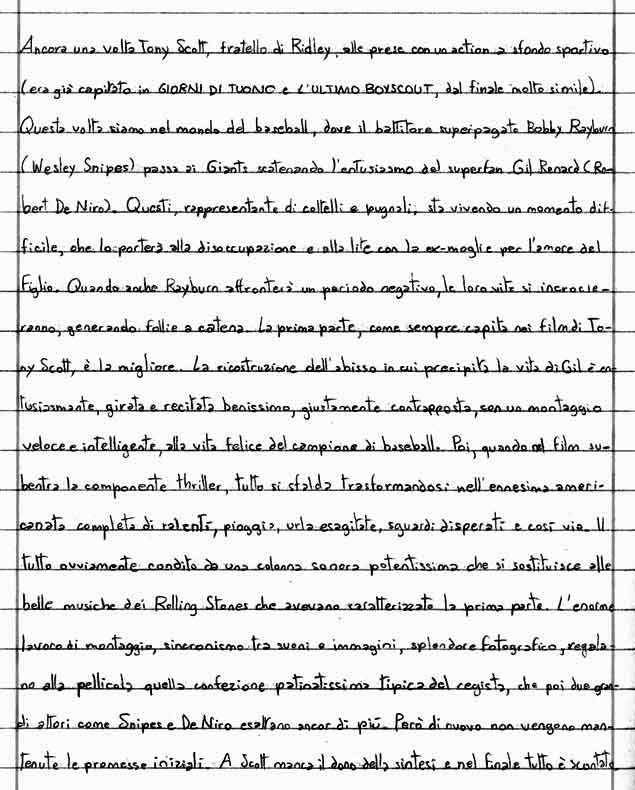 Ancora una volta Tony Scott, fratello di Ridley, alle prese con un action a sfondo sportivo
(era già capitato in GIORNI DI TUONO e L'ULTIMO BOYSCOUT, dal finale molto simile).
Questa volta siamo nel mondo del baseball, dove il battitore superpagato Bobby Rayburn
(Wesley Snipes) passa ai Giants scatenando l'entusiasmo del superfan Gil Renard (Ro-
bert De Niro). Questi, rappresentante di coltelli e pugnali, sta vivendo un momento dif-
ficile, che lo porterà alla disoccupazione e alla lite con la ex-moglie per l'amore del
figlio. Quando anche Rayburn affronterà un periodo negativo, le loro vite si incrocie-
ranno, generando follie a catena. La prima parte, come sempre capita nei film di To-
ny Scott, è la migliore. La ricostruzione dell'abisso in cui precipita la vita di Gil è en-
tusiasmante, girata e recitata benissimo, giustamente contrapposta, con un montaggio
veloce e intelligente, alla vita felice del campione di baseball. Poi, quando nel film su-
bentra la componente thriller, tutto si sfalda trasformandosi nell'ennesima ameri-
canata completa di ralenti, pioggia, urla esagitate, sguardi disperati e così via. Il
tutto ovviamente condito da una colonna sonora potentissima che si sostituisce alle
belle musiche dei Rolling Stones che avevano caratterizzato la prima parte. L'enorme
lavoro di montaggio, sincronismo tra suoni e immagini, splendore fotografico, regala-
no alla pellicola quella confezione patinatissima tipica del regista, che poi due gran-
di attori come Snipes e De Niro esaltano ancor di più. Però di nuovo non vengono man-
tenute le promesse iniziali. A Scott manca il dono della sintesi e nel finale tutto è scontato